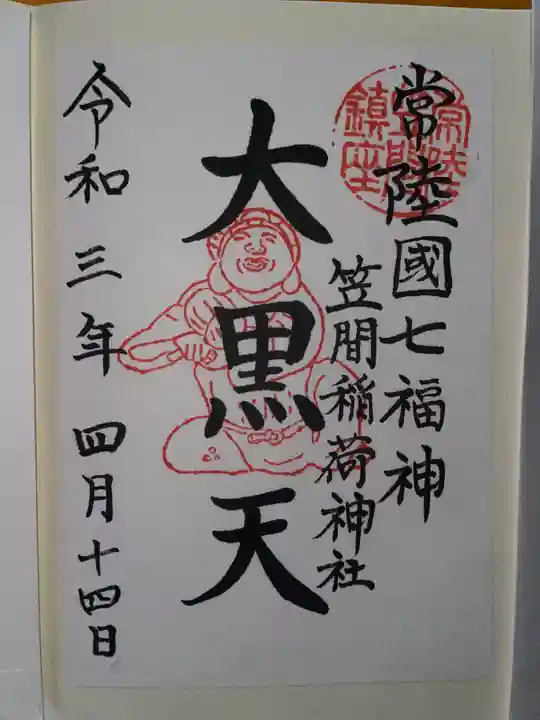 常陸國七福神
笠間稲荷神社
大黒天
令和三年四月十四日
常陸
鎮座